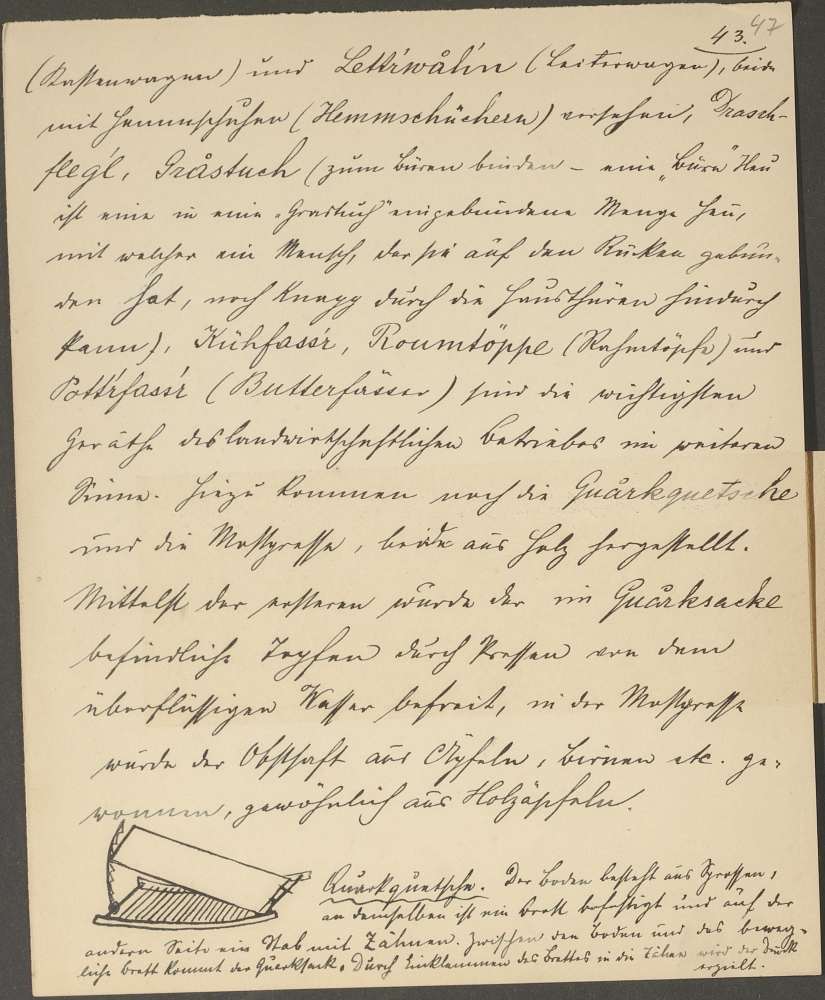 43. 47
(Kastenwagen) und Lettrwålin (Leiterwagen), beide
mit Hemmschuhen (Hemmschüchern) versehen, Drasch-
fleg'l, Gråstuch (zum Büren binden – eine „Büre" Heu
ist eine in eine „Grastuch" eingebundene Menge Heu,
mit welcher ein Mensch, der sie auf den Rücken gebun-
den hat, noch knapp durch die Hausthüren hindurch
kann), Kühfass'r, Roumtöppe (Rahmtöpfe) und
Pott'rfass'r (Butterfässer) sind die wichtigsten
Geräthe des landwirtschaftlichen Betriebes im weiteren
Sinne. Hiezu kommen noch die Quårkquetsche
und die Mostpresse, beide aus Holz hergestellt.
Mittelst der ersteren wurde der im Quårksacke
befindliche Topfen durch Pressen von dem
überflüssigen Wasser befreit, in der Mostpresse
wurde der Obstsaft aus Äpfeln, Birnen etc. ge-
wonnen, gewöhnlich aus Holzäpfeln.
Quarkquetsche. Der Boden besteht aus Sprossen,
an demselben ist ein Brett befestigt und auf der
andern Seite ein Stab mit Zähnen. Zwischen den Boden und das beweg-
liche Brett kommt der Quarksack. Durch Einklemmen des Brettes in die Zähne wird der Druck
erzielt.